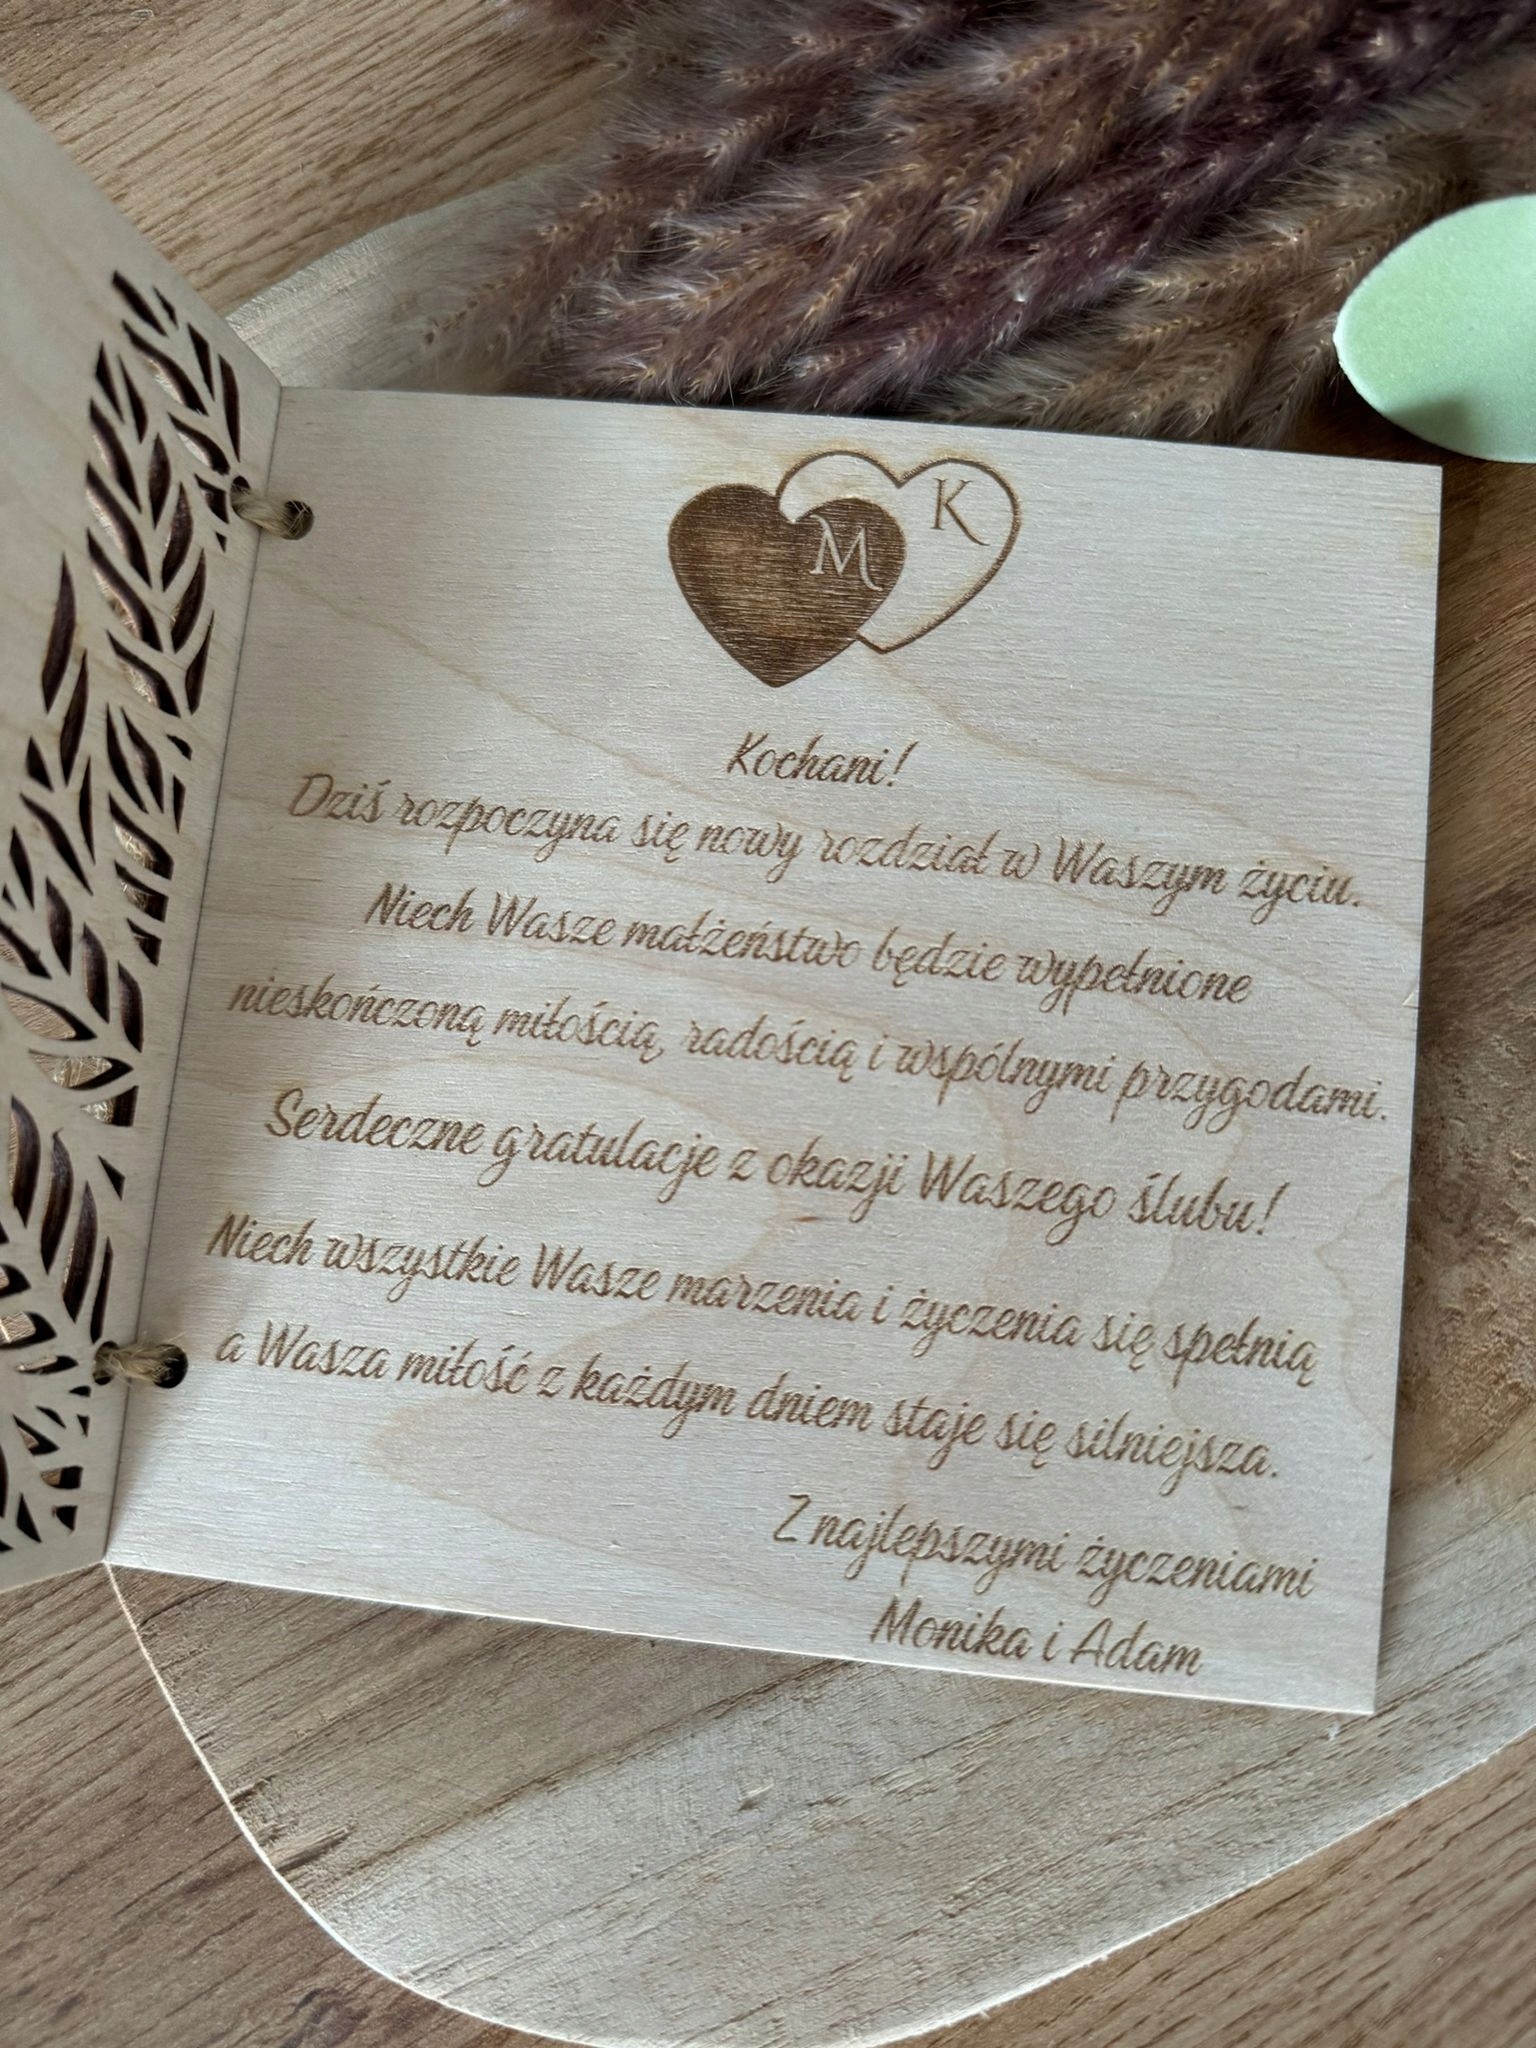 M K
Kochani!
Dziś rozpoczyna się nowy rozdział w Waszym życiu.
Niech Wasze małżeństwo będzie wypełnione
nieskończoną miłością, radością i wspólnymi przygodami.
Serdeczne gratulacje z okazji Waszego ślubu!
Niech wszystkie Wasze marzenia i życzenia się spełnią
a Wasza miłość z każdym dniem staje się silniejsza.
Z najlepszymi życzeniami
Monika i Adam